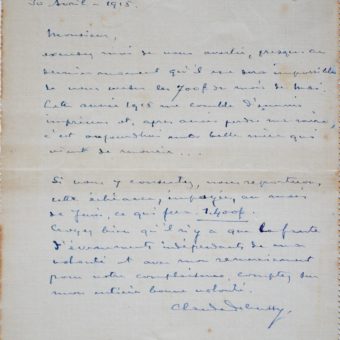 30 Avril - 1915.
Monsieur,
excusez moi de vous avertir, presque au
dernier moment qu'il me sera impossible
de vous verser les 700f du mois de Mai.
Cette année 1915 me comble d'ennuis
imprévus et, après avoir perdu ma mère,
c'est aujourd'hui notre belle mère qui
vient de mourir...
Si vous y consentez, nous reporterions
cette échéance, impayée, au mois
de Juin, ce qui fera 1.400f.
Croyez bien qu'il n'y a que la faute
d'événements indépendants de ma
volonté et avec mon remerciement
pour votre complaisance, comptez sur
mon entière bonne volonté.
Claude Debussy.